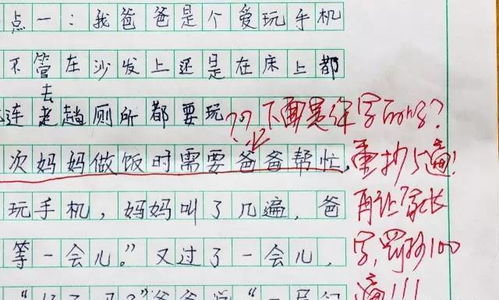 点一:我爸爸是个爱玩手机
不管在沙发上还是在床上都
去
连老趟厕所都要玩
次妈妈做饭时需要爸爸帮忙,
玩手机,妈妈叫了几遍,爸
等一会儿。”又过了一会儿,
??下面是
字的吗?
重抄5遍!
再让家长
字,罚抄100
遍!!!